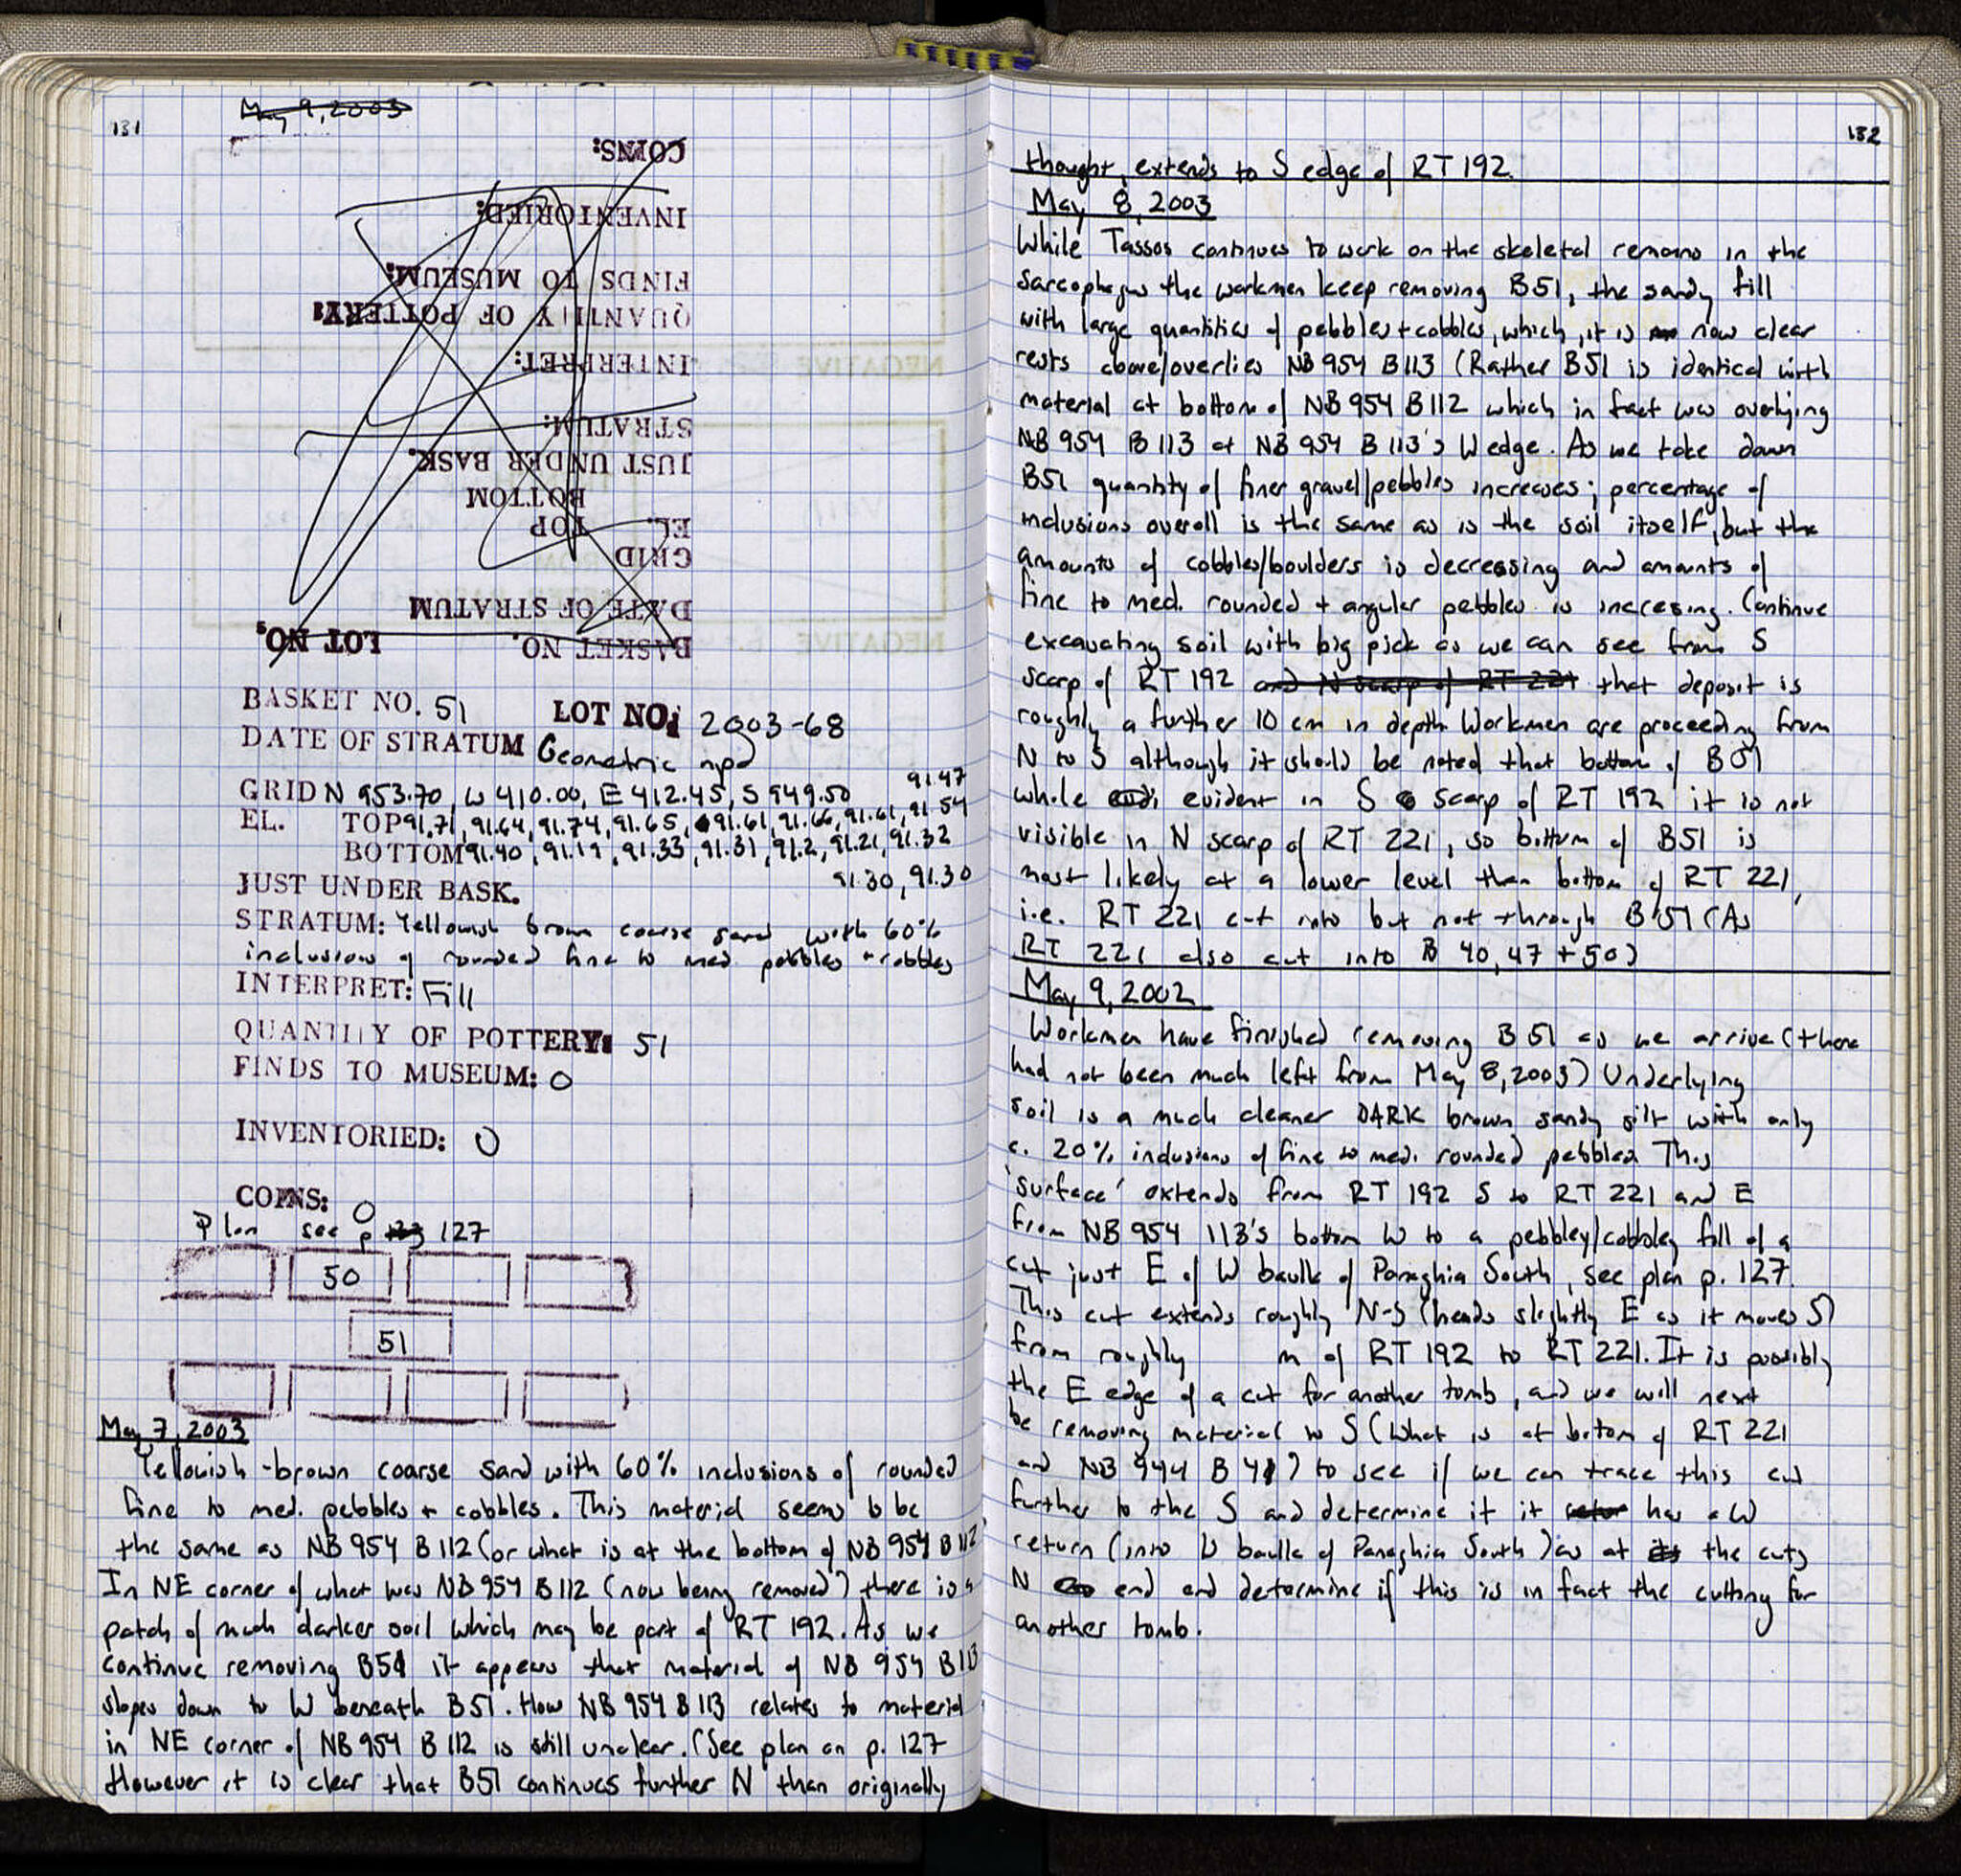 131
May 9, 2003
COINS:
INVENTORIED:
FINDS TO MUSEUM:
QUANTITY OF POTTERY:
INTERPRET:
STRATUM:
JUST UNDER BASK.
BOTTOM
EL. TOP
GRID
DATE OF STRATUM
BASKET NO. LOT NO.
BASKET NO. 51 LOT NO. 2003-68
DATE OF STRATUM Geometric npd
GRID N 953.70, W 410.00, E 412.45, S 949.50 91.47
EL. TOP 91.71, 91.64, 91.74, 91.65, 91.61, 91.66, 91.61, 91.54
BOTTOM 91.40, 91.19, 91.33, 91.31, 91.2, 91.21, 91.32
91.30, 91.30
JUST UNDER BASK.
STRATUM: Yellowish brown coarse sand with 60%
inclusions of rounded fine to med. pebbles + cobbles
INTERPRET: Fill
QUANTITY OF POTTERY: 51
FINDS TO MUSEUM: 0
INVENTORIED: 0
COINS: 0
Plan see p 127
50
51
May 7, 2003
Yellowish-brown coarse sand with 60% inclusions of rounded
fine to med. pebbles + cobbles. This material seems to be
the same as NB 954 B 112 (or what is at the bottom of NB 954 B 112
In NE corner of what was NB 954 B 112 (now being removed) there is a
patch of much darker soil which may be part of RT 192. As we
continue removing B51 it appears that material of NB 954 B 113
slopes down to W beneath B51. How NB 954 B 113 relates to material
in NE corner of NB 954 B 112 is still unclear. (See plan on p. 127
However it is clear that B51 continues further N than originally
132
thought, extends to S edge of RT 192.
May 8, 2003
While Tassos continues to work on the skeletal remains in the
sarcophagus the workmen keep removing B51, the sandy fill
with large quantities of pebbles + cobbles, which, it is now clear
rests above/overlies NB 954 B113 (Rather B51 is identical with
material at bottom of NB 954 B 112 which in fact was overlying
NB 954 B 113 at NB 954 B 113's W edge. As we take down
B51 quantity of finer gravel/pebbles increases; percentage of
inclusions overall is the same as is the soil itself, but the
amounts of cobbles/boulders is decreasing and amounts of
fine to med. rounded + angular pebbles is incresing. Continue
excavating soil with big pick as we can see from S
scarp of RT 192 and N scarp of RT 221 that deposit is
roughly a further 10 cm in depth. Workmen are proceeding from
N to S although it should be noted that bottom of B51
while evident in S scarp of RT 192 it is not
visible in N scarp of RT 221, so bottom of B51 is
most likely at a lower level than bottom of RT 221,
i.e. RT 221 cut into but not through B 51 (As
RT 221 also cut into B 40, 47 + 50)
May 9, 2002
Workmen have finished removing B 51 as we arrive (there
had not been much left from May 8, 2003) Underlying
soil is a much cleaner DARK brown sandy silt with only
c. 20% inclusions of fine to med. rounded pebbles. This
'surface' extends from RT 192 S to RT 221 and E
from NB 954 113's bottom W to a pebbley/cobbley fill of a
cut just E of W baulk of Panaghia South, see plan p. 127.
This cut extends roughly N-S (heads slightly E as it moves S)
from roughly m of RT 192 to RT 221. It is possibly
the E edge of a cut for another tomb, and we will next
be removing material to S (What is at bottom of RT 221
and NB 944 B 41?) to see if we can trace this cut
further to the S and determine if it has a W
return (into W baulk of Panaghia South) as at the cuts
N end and determine if this is in fact the cutting for
another tomb.